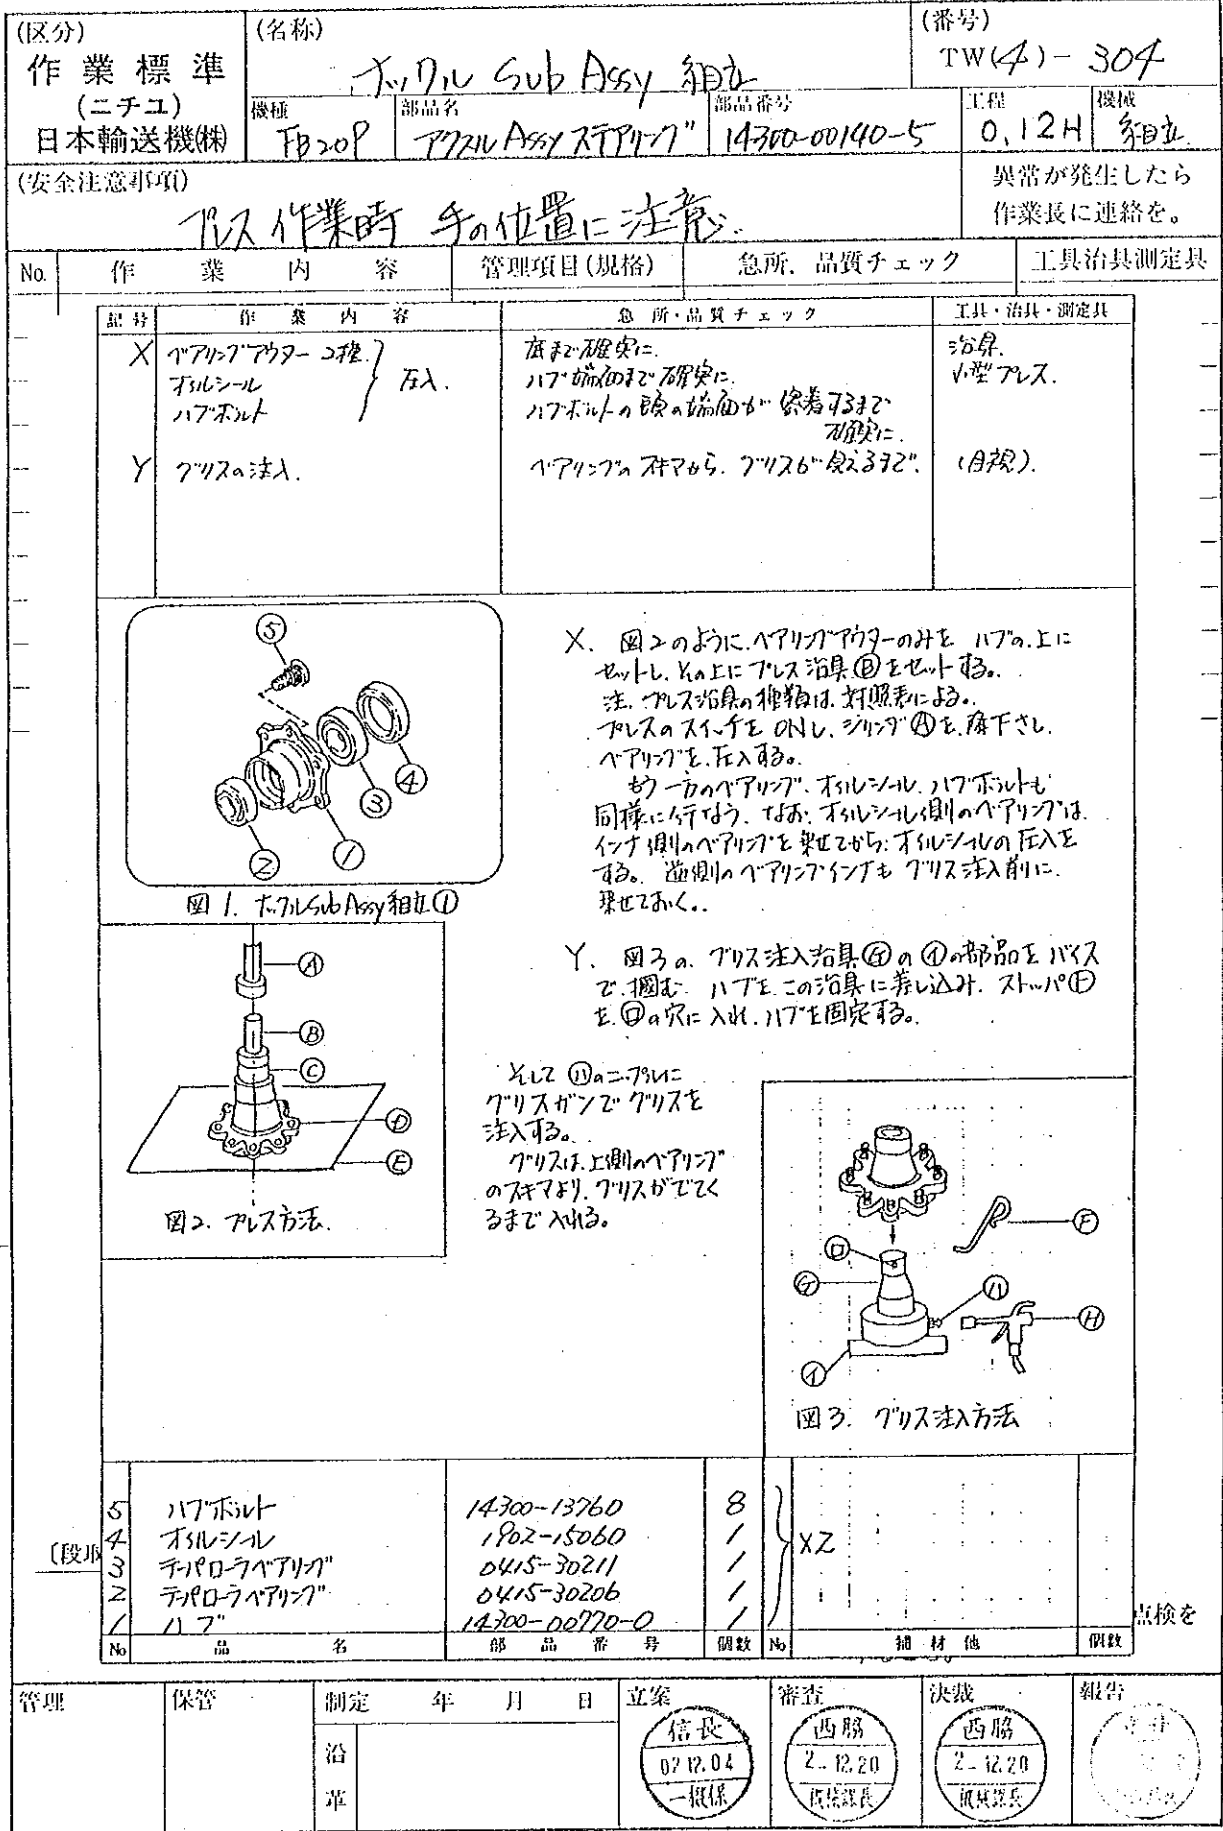 (区分)
作業標準
(ニチユ)
日本輸送機㈱
(名称)
ナックル Sub Assy 組立
(番号)
TW(4)-304
機種
FB20P
部品名
アクスル Assy ステアリング
部品番号
14300-00140-5
工程
0.12H
機械
組立
(安全注意事項)
プレス作業時 手の位置に注意.
異常が発生したら
作業長に連絡を。
No. 作業内容 管理項目(規格) 急所、品質チェック 工具治具測定具
記号 作業内容 急所・品質チェック 工具・治具・測定具
X ベアリングアウター 2種. 底まで確実に. 治具.
オイルシール 圧入. ハブ端面まで確実に. 小型プレス.
ハブボルト ハブボルトの頭の端面が密着するまで
確実に.
Y グリスの注入. ベアリングのスキマから. グリスが見えるまで. (目視).
⑤
④
③
②
①
図1. ナックルSub Assy組立①
X. 図2のように.ベアリングアウターのみを ハブの上に
セットし.その上にプレス治具Ⓑをセットする。
注. プレス治具の種類は.対照表による。
プレスのスイッチをONし.シリンダⒶを.降下さし.
ベアリングを.圧入する。
もう一方のベアリング、オイルシール、ハブボルトも
同様に行なう. なお. オイルシール側のベアリングは.
インナ側のベアリングを乗せてから.オイルシールの圧入を
する。 逆側のベアリングインナも グリス注入前に.
乗せておく.
Ⓐ
Ⓑ
Ⓒ
Ⓓ
Ⓔ
図2. プレス方法.
Y. 図3の. グリス注入治具Ⓖの㋑の部品をバイス
で.掴む. ハブを.この治具に差し込み. ストッパⒻ
を.㋺の穴に入れ.ハブを固定する。
そして㋩のニップルに
グリスガンでグリスを
注入する。
グリスは.上側のベアリング
のスキマより.グリスがでてく
るまで入れる。
Ⓕ
㋺
Ⓖ
㋩
Ⓗ
㋑
図3. グリス注入方法
5 ハブボルト 14300-13760 8
4 オイルシール 1902-15060 1
3 テーパローラベアリング 0415-30211 1
2 テーパローラベアリング 0415-30206 1
1 ハブ 14300-00770-0 1
XZ
No 品名 部品番号 個数 No 補材他 個数
〔段取
点検を
管理 保管 制定 年 月 日
沿革
立案
信長
02.12.04
一機係
審査
西脇
2.-12.20
機械課長
決裁
西脇
2.-12.20
機械課長
報告